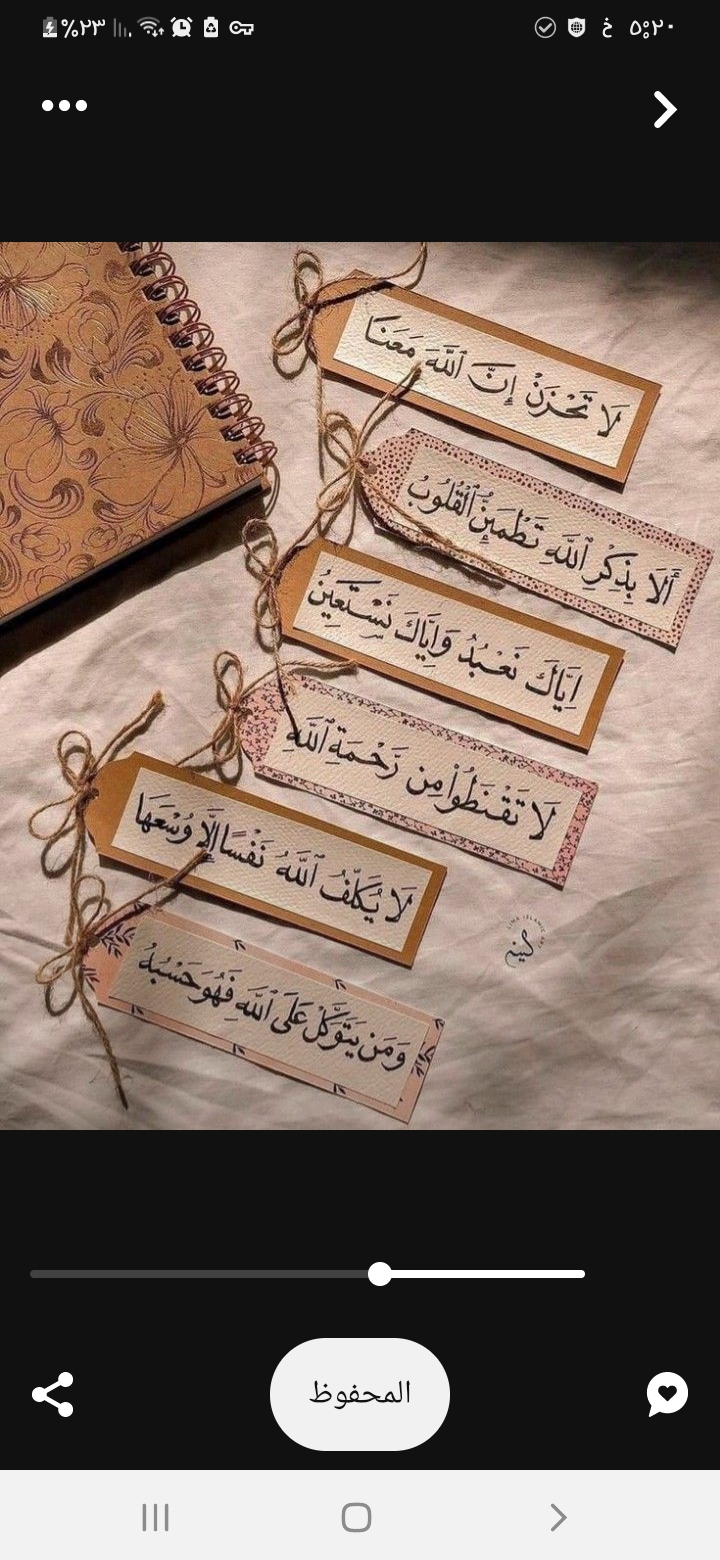 %٢٣
خ ٥:٢٠
لَا تَحْزَنْ إِنَّ ٱللَّهَ مَعَنَا
أَلَا بِذِكْرِ ٱللَّهِ تَطْمَئِنُّ ٱلْقُلُوبُ
اِيَّاكَ نَعْبُدُ وَاِيَّاكَ نَسْتَعِينُ
لَا تَقْنَطُواْ مِن رَّحْمَةِ ٱللَّهِ
لَا يُكَلِّفُ ٱللَّهُ نَفْسًا إِلَّا وُسْعَهَا
وَمَن يَتَوَكَّلْ عَلَى ٱللَّهِ فَهُوَ حَسْبُهُ
المحفوظ